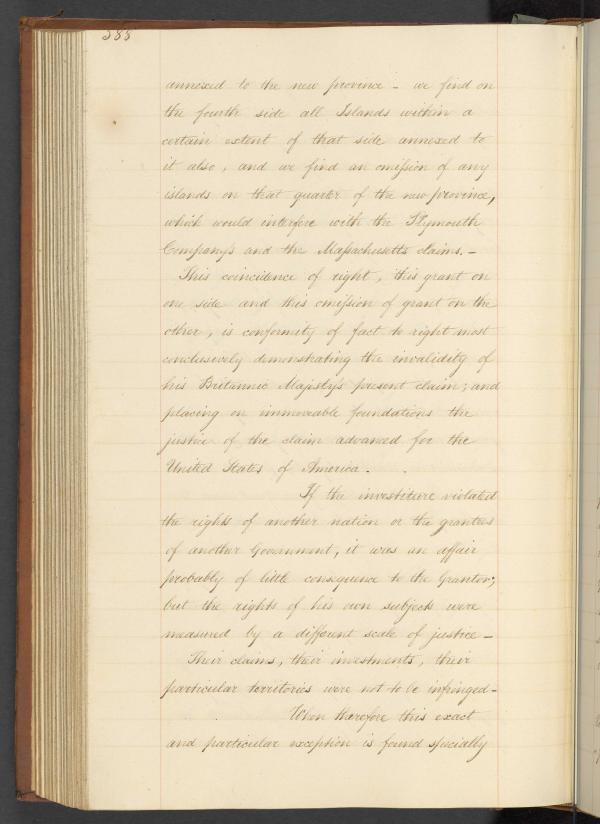 388
annexed to the new province - we find on
the fourth side all Islands within a
certain extent of that side annexed to
it also, and we find an omission of any
islands on that quarter of the new province,
which would interfere with the Plymouth
Company's and the Massachusetts claims. -
This coincidence of right, this grant on
one side and this omission of grant on the
other, is conformity of fact to right most
conclusively demonstrating the invalidity of
his Britannic Majesty's present claim; and
placing on immoveable foundations the
justice of the claim advanced for the
United States of America -
If the investiture violated
the rights of another nation or the grantees
of another Government, it was an affair
probably of little consequence to the Grantor;
but the rights of his own subjects were
measured by a different scale of justice -
Their claims, their investments, their
particular territories were not to be infringed -
When therefore this exact
and particular exception is found specially